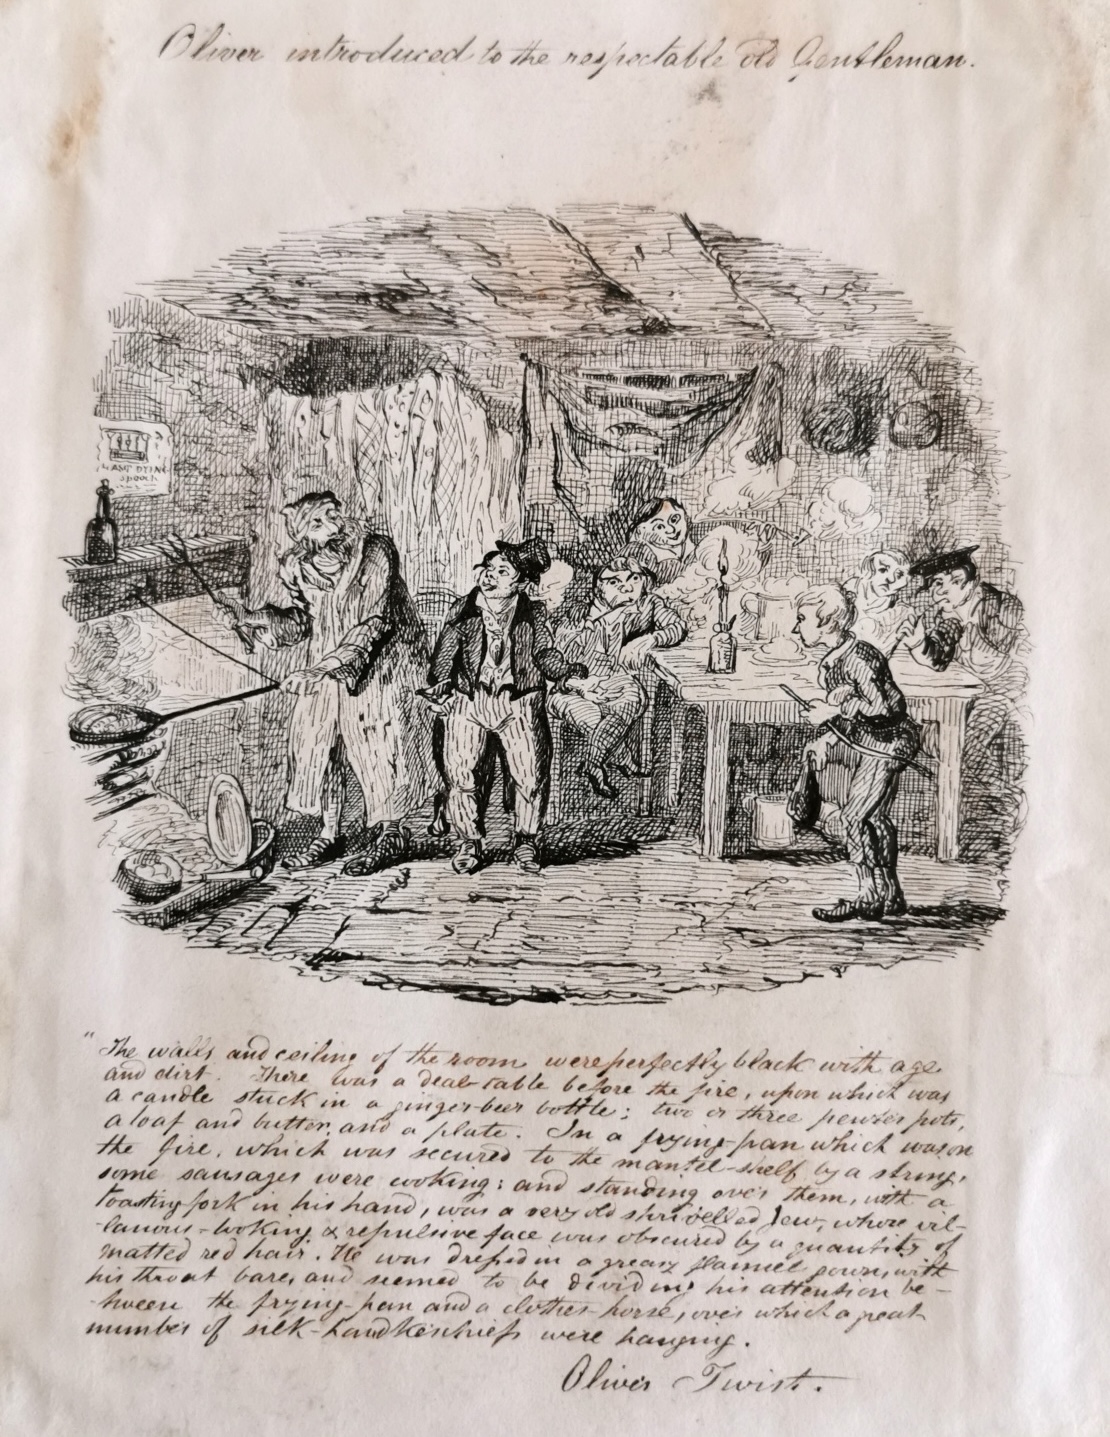 Oliver introduced to the respectable old Gentleman.
LAST DYING
Speech
"The walls and ceiling of the room were perfectly black with age
and dirt. There was a deal-table before the fire, upon which was
a candle stuck in a ginger-beer bottle; two or three pewter pots,
a loaf and butter, and a plate. In a frying-pan which was on
the fire, which was secured to the mantel-shelf by a string,
some sausages were cooking; and standing over them, with a
toasting fork in his hand, was a very old shrivelled Jew, whose vil-
lanous-looking & repulsive face was obscured by a quantity of
matted red hair. He was dressed in a greasy flannel gown, with
his throat bare, and seemed to be dividing his attention be-
tween the frying-pan and a clothes-horse, over which a great
number of silk-handkerchiefs were hanging.
Oliver Twist.